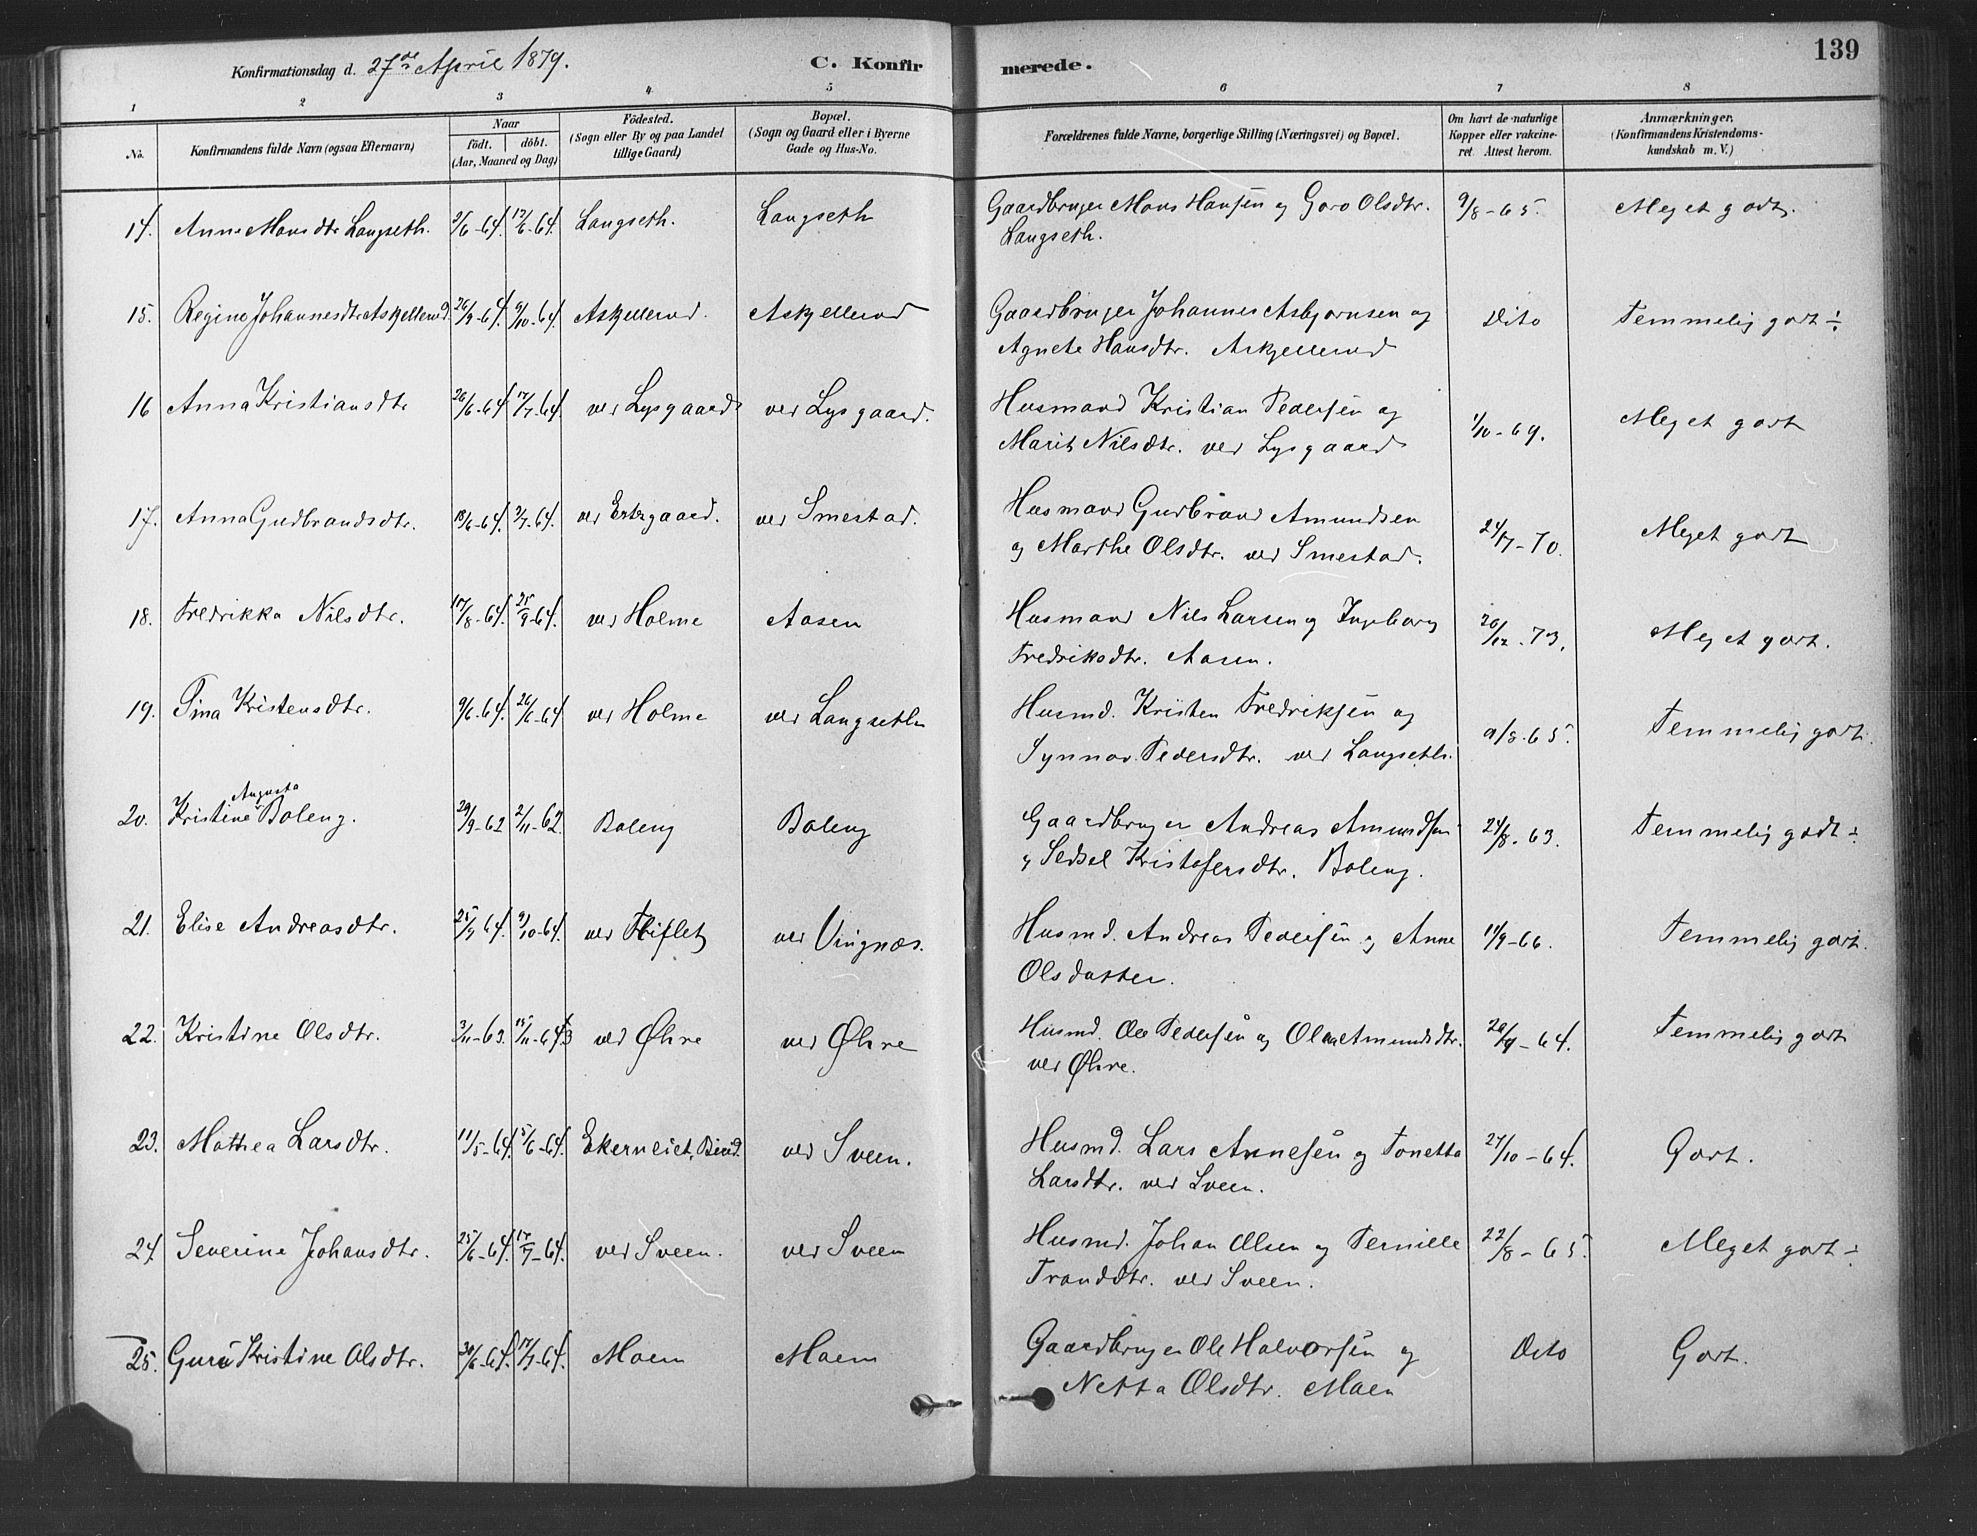 139
Konfirmationsdag d. 27de April 1879. C. Konfirmerede.
1 2 3 4 5 6 7 8
No. Konfirmandens fulde Navn (ogsaa Efternavn) Naar födt. döbt. (Aar, Maaned og Dag) Födested. (Sogn eller By og paa Landet tillige Gaard) Bopæl. (Sogn og Gaard eller i Byerne Gade og Hus-No. Forældrenes fulde Navne, borgerlige Stilling (Næringsvei) og Bopæl. Om havt de naturlige Kopper eller vakcineret. Attest herom. Anmærkninger. (Konfirmandens Kristendomskundskab m. V.)
14. Anne Mansdtr Langseth. 2/6-64. 12/6-64. Langseth. Langseth Gaardbruger Mons Hansen og Goro Olsdtr. 9/8-65. Meget godt.
Langseth.
15. Regine Johannesdtr Askjellerud. 26/9-64. 9/10-64. Askjellerud. Askjellerud Gaardbruger Johannes Asbjørnsen og Dito Temmelig godt ÷
Agnete Hansdtr. Askjellerud
16 Anna Kristiansdtr 26/6-64 17/7-64. ved Lysgaard ved Lysgaard. Husmand Kristian Pedersen og 1/10-69. Meget godt
Marit Nilsdtr. ved Lysgaard
17. Anna Gudbrandsdtr. 18/6-64. 3/7-64. ved gaard. ved Smestad. Husmand Gudbrand Amundsen 24/7-70. Meget godt
og Marthe Olsdtr. ved Smestad.
18. Fredrikka Nilsdtr. 17/8-64. 25/9-64. ved Holme Aasen Husmand Nils Larsen og Ingeborg 20/12-73. Meget godt.
Fredriksdtr. Aasen.
19. Tina Kristensdtr. 9/6-64. 26/6-64 ved Holme ved Langseth Husmd. Kristen Fredriksen og 9/8-65. Temmelig godt.
Synnøv Pedersdtr. ved Langseth.
20. Kristine Augusta Boleng. 29/9-62 2/11-62. Boleng Boleng Gaardbruger Andreas Amundsen 24/8-63. Temmelig godt ÷
og Sedsel Kristofersdtr. Boleng.
21. Elise Andreasdtr. 25/9 64. 9/10-64. ved Fliflet ved Vingnæs. Husmd. Andreas Pedersen og Anne 11/9-66. Temmelig godt.
Olsdatter.
22. Kristine Olsdtr. 3/11-63. 15/11-643 ved Øhre ved Øhre Husmd. Ole Pedersen og Olea Amundsdtr. 20/9-64. Temmelig godt
ved Øhre.
23. Mathea Larsdtr. 11/5-64. 5/6-64. Ekerneiet, Bird. ved Sveen. Husmd. Lars Arnesen og Tonetta 27/10-64. Godt.
Larsdtr. ved Sveen.
24. Severine Johansdtr. 25/6-64. 17/7-64. ved Sveen. ved Sveen Husmd. Johan Olsen og Pernille 22/8-65. Meget godt ÷
Tronddtr. ved Sveen.
25. Guru Kristine Olsdtr. 30/6-64. 17/7-64. Moen Moen Gaardbruger Ole Halvorsen og Dito Godt.
Netta Olsdtr. Moen